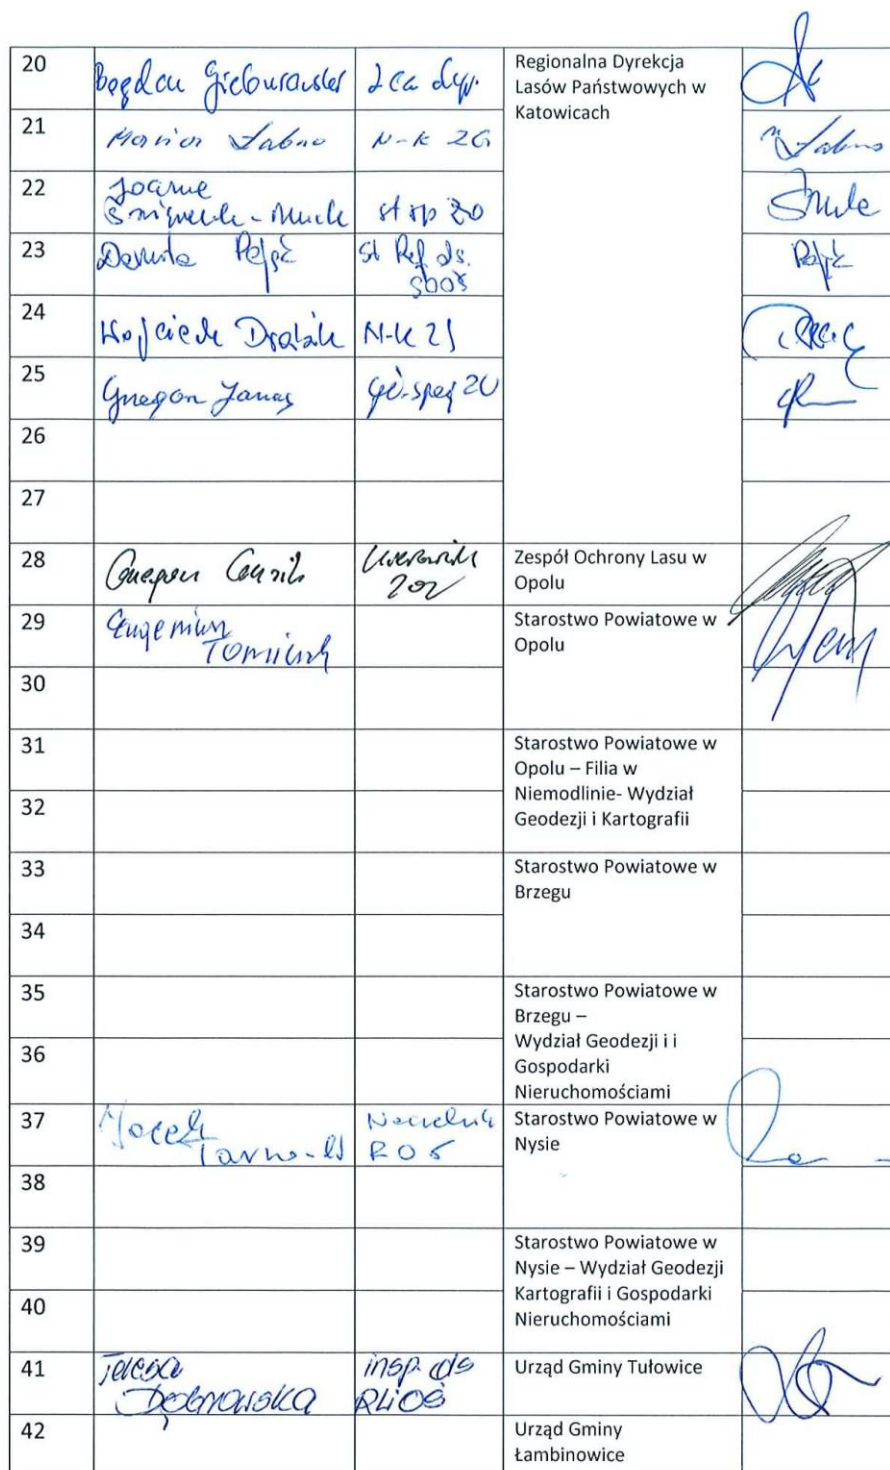 20 Bogdan Gieburowski Z-ca dyr. Regionalna Dyrekcja
Lasów Państwowych w
Katowicach
21 Marian Łabno N-k ZG Łabno
22 Joanna
st sp ZO
23 Danuta Pająk St Ref ds.
Pająk
24 Wojciech N-k
25 Grzegorz Janas
26
27
28 Grzegorz Kierownik Zespół Ochrony Lasu w
ZOL Opolu
29 Eugeniusz Starostwo Powiatowe w
Opolu
30
31 Starostwo Powiatowe w
Opolu – Filia w
Niemodlinie- Wydział
32 Geodezji i Kartografii
33 Starostwo Powiatowe w
Brzegu
34
35 Starostwo Powiatowe w
Brzegu –
Wydział Geodezji i i
36 Gospodarki
Nieruchomościami
37 Jacek Naczelnik Starostwo Powiatowe w
Nysie
38
39 Starostwo Powiatowe w
Nysie – Wydział Geodezji
Kartografii i Gospodarki
40 Nieruchomościami
41 Teresa insp. ds Urząd Gminy Tułowice
Dąbrowska RLiOŚ
42 Urząd Gminy
Łambinowice